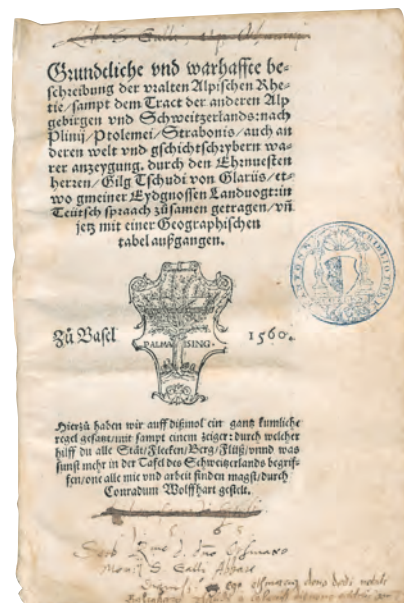 Grundeliche vnd warhaffte be-
schreibung der vralten Alpischen Rhe-
tie/sampt dem Tract der anderen Alp
gebirgen vnd Schweitzerlands: nach
Plinij/Ptolemei/Strabonis/auch an
deren welt vnd gschichtschrybern wa-
rer anzeygung. durch den Ehrnuesten
herren/Gilg Tschudi von Glarüs/et-
wo gmeiner Eydgnossen Landuogt: in
Teütsch spraach zůsamen getragen/vñ
jetz mit einer Geographischen
tabel außgangen.
Zů Basel PALMA ISING. 1560.
Hierzů haben wir auff dißmol ein gantz kumliche
regel gesatzt/mit sampt einem zeiger: durch welcher
hilff du alle Stät/Flecken/Berg/Flüß/vnnd was
sunst mehr in der Tafel des Schweitzerlands begrif-
fen/one alle mie vnd arbeit finden magst/durch
Conradum Wolffhart gestelt.